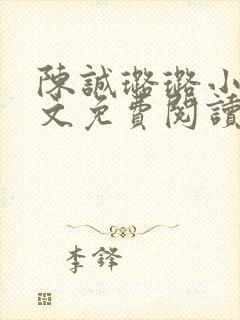 陳誠璐璐小
文免費閱讀
李鋒